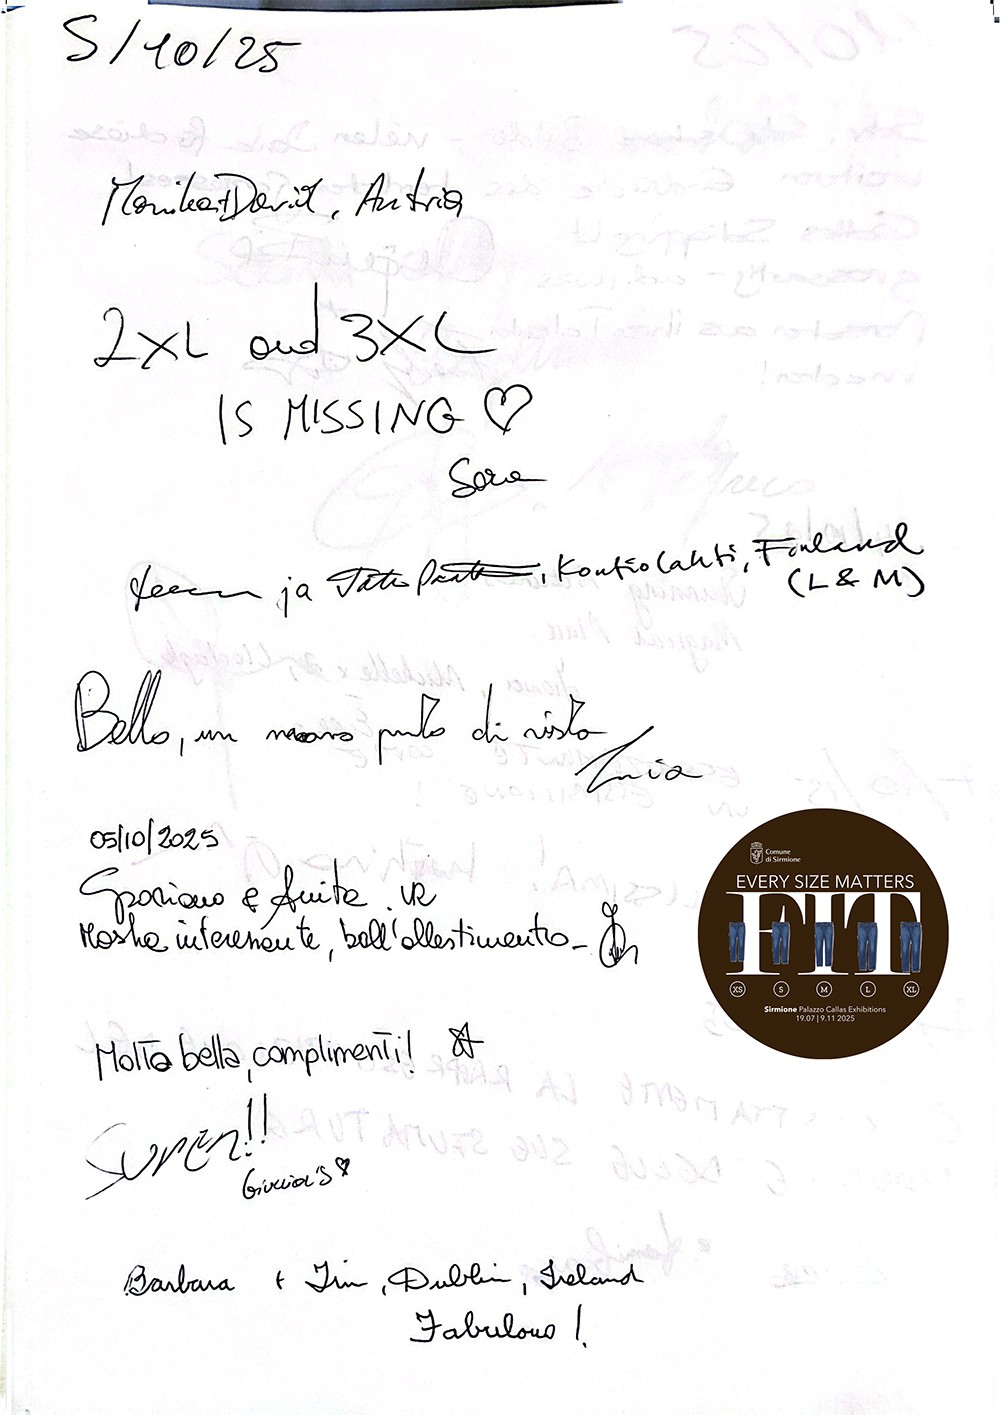 5/10/25
Monika + David, Austria
2XL and 3XL
IS MISSING ♡
Sara
ja, Kontiolahti, Finland
(L & M)
Bello, un nuovo punto di vista
05/10/2025
Graziano e Anita. VR
Mostra interessante, bell'allestimento -
Molto bella, complimenti! ☆
SUPER!!
Barbara + Jim, Dublin, Ireland
Fabulous!
Comune
di Sirmione
EVERY SIZE MATTERS
FIT
XS S M L XL
Sirmione Palazzo Callas Exhibitions
19.07 | 9.11 2025